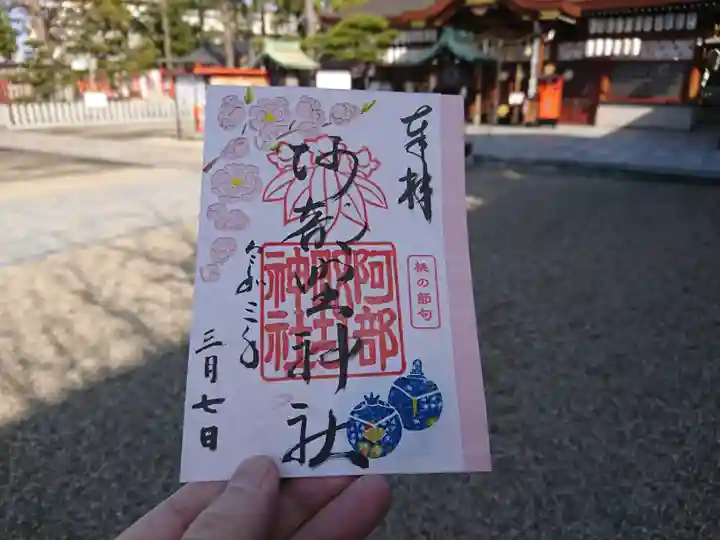 奉拝
桃の節句
阿部野神社
阿部
野
神社
令和三年
三月七日